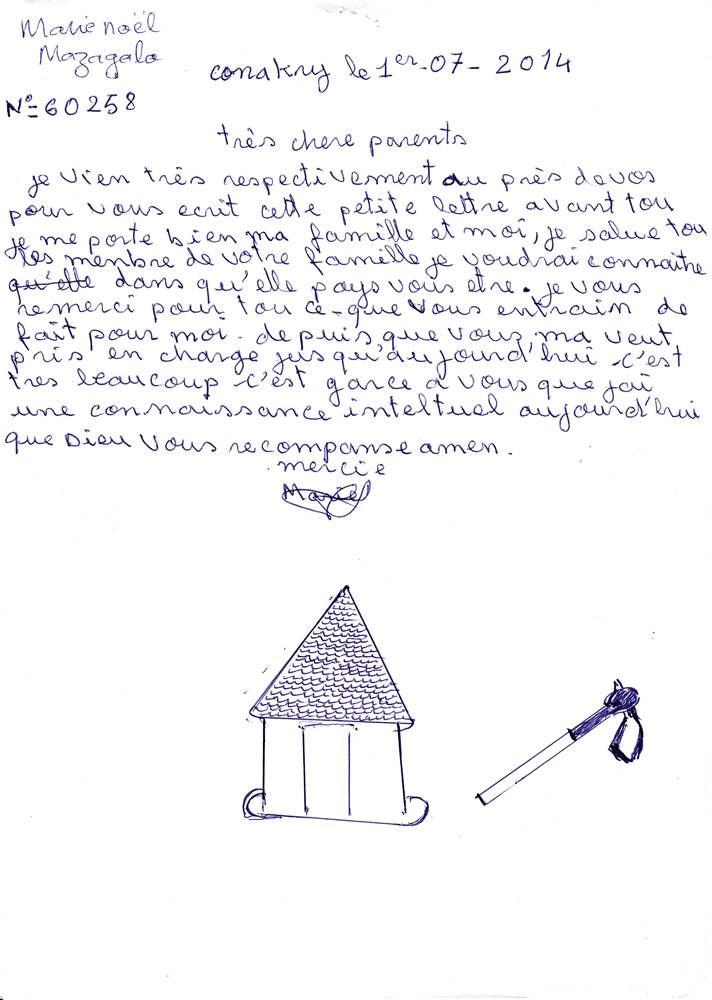 Marie noël
Mazagalo
conakry le 1er-07-2014
N°=60258
très chere parents
je vien très respectivement au près de vos
pour vous ecrit cette petite lettre avant tou
je me porte bien ma famille et moi, je salue tou
les menbre de votre famille je voudrai connaitre
qu'elle dans qu'elle pays vous etre. je vous
remerci pour tou ce-que vous entrain de
fait pour moi. depuis que vous, ma veut
pris en charge jusqu'aujourd'hui -c'est
tres beaucoup -c'est garce à vous que jai
une connaissance inteltuel aujourd'hui
que Dieu vous recompanse amen.
mercie
Marie